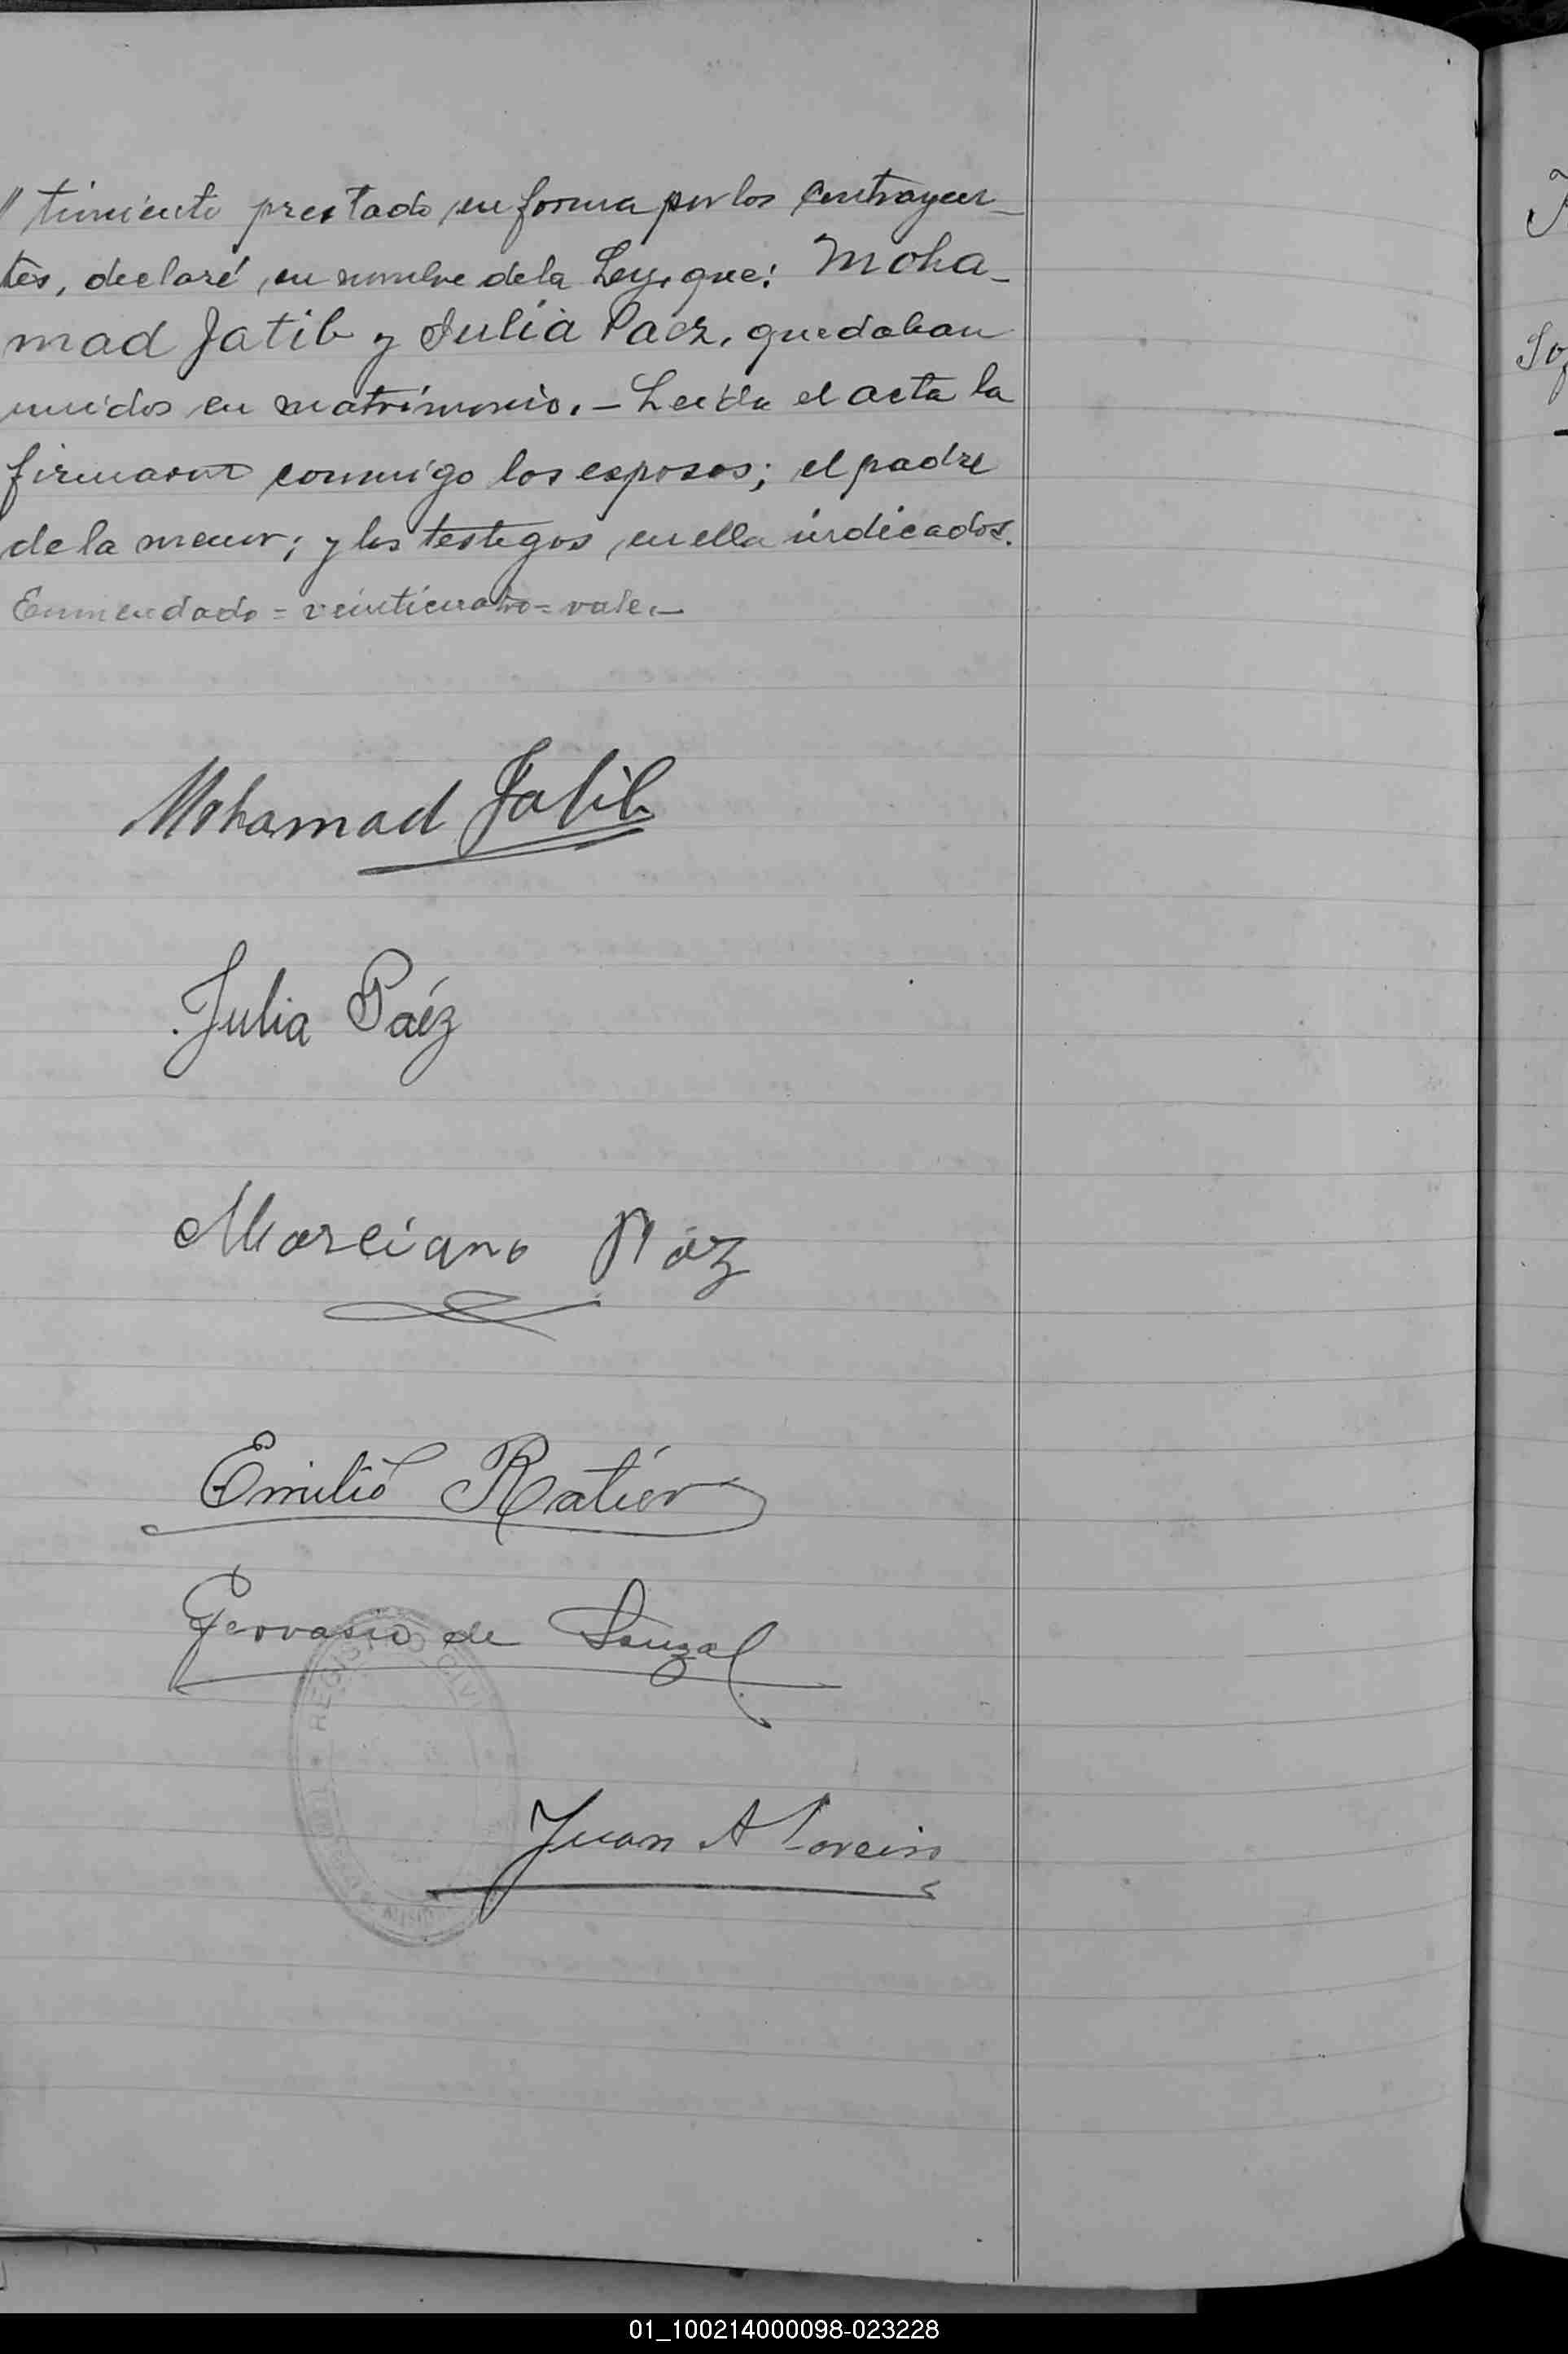 // timiento prestado en forma por los contrayen-
tes, declaré, en nombre de la Ley, que: Moha-
mad Jatib y Julia Paez, quedaban
unidos en matrimonio. - Leída el acta la
firmaron conmigo los esposos; el padre
de la menor; y los testigos en ella indicados.
Enmendado = veinticuatro = vale. -
Mohamad Jatib
Julia Paéz
Marciano Páz
Emilio Ratier
Gervasio de Souza
REGISTRO CIVIL
Juan A
01_100214000098-023228